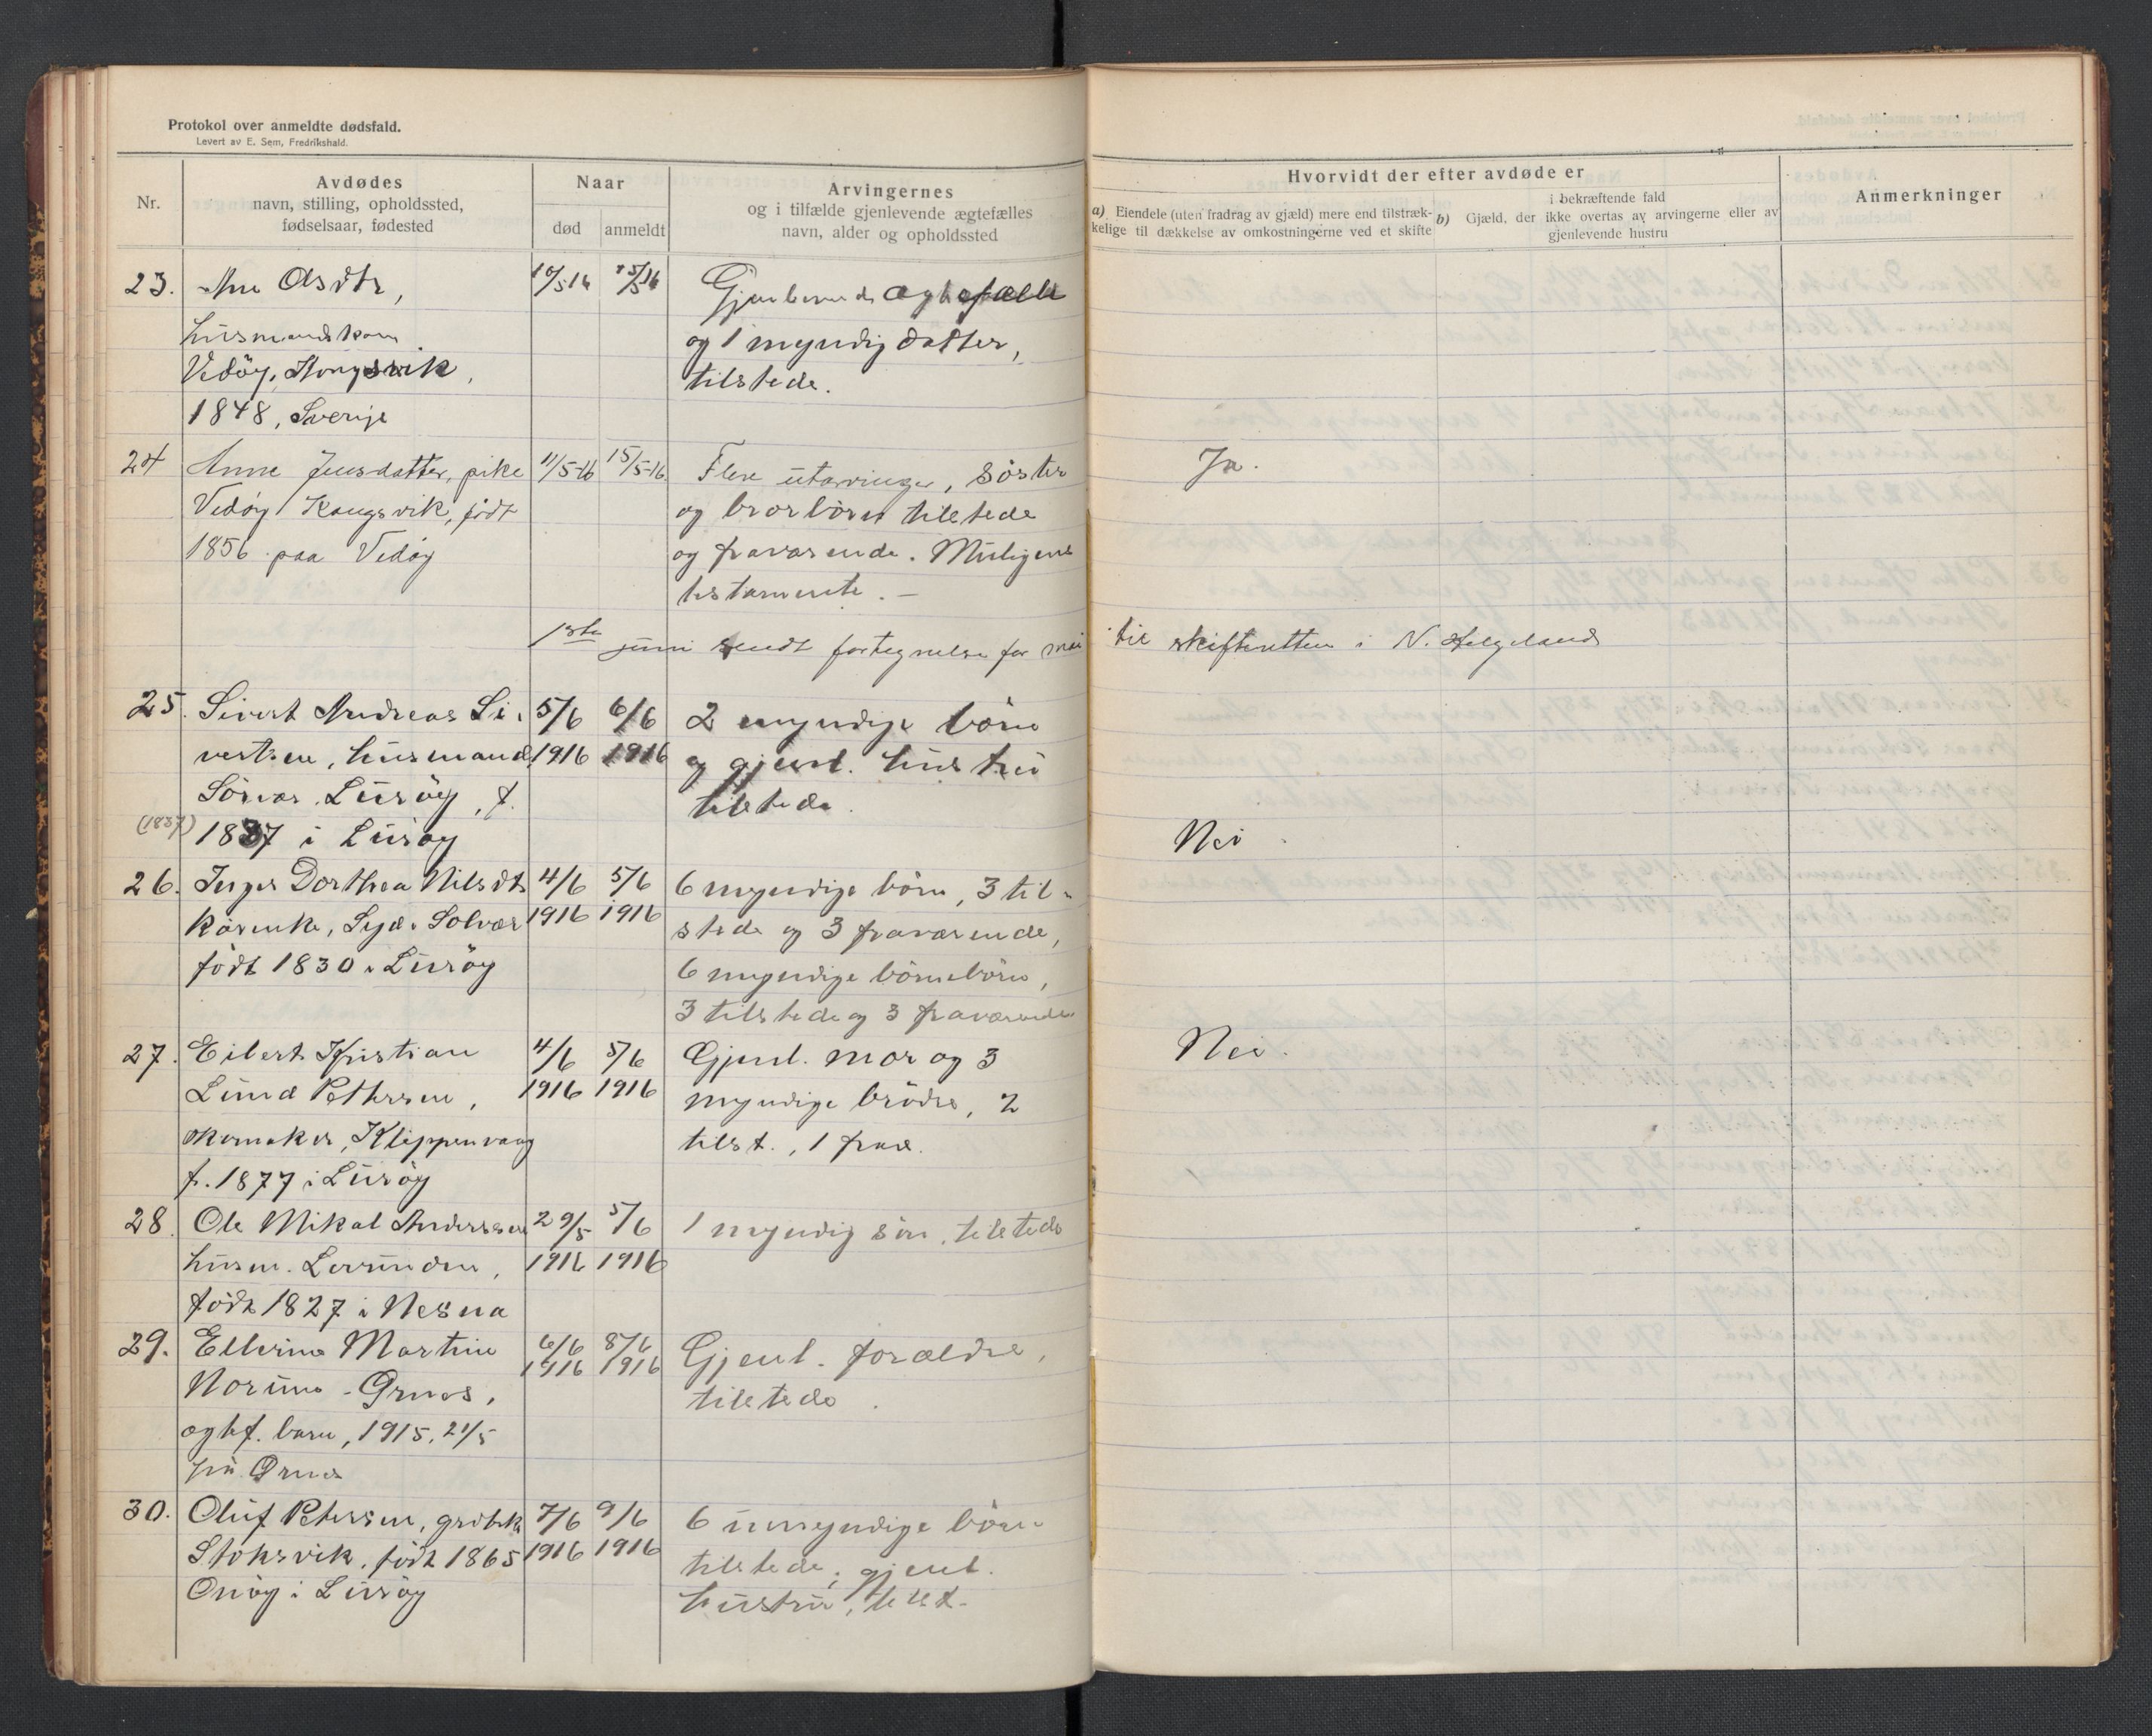 Protokol over anmeldte dødsfald.
Levert av E. Sem, Fredrikshald.
Nr.
Avdødes
navn, stilling, opholdssted,
fødselsaar, fødested
Naar
død
anmeldt
Arvingernes
og i tilfælde gjenlevende ægtefælles
navn, alder og opholdssted
Hvorvidt der efter avdøde er
a) Eiendele (uten fradrag av gjæld) mere end tilstræk-
kelige til dækkelse av omkostningerne ved et skifte
b) Gjæld, der i bekræftende fald
ikke overtas av arvingerne eller av
gjenlevende hustru
Anmerkninger
23. Ane Olsdtr, 10/5 16 15/5 16 Gjenlevende ægtefælle
husmandskone og 1 myndig datter,
Vedøy, Kongsvik, tilstede.
1848, Sverige
24 Anne Jensdatter, pike 11/5-16 15/5-16. Flere utarvinger, søster Ja.
Vedøy Kongsvik, født og brorbørn tilstede
1856 paa Vedøy og fraværende. Muligens
testamente. -
1ste juni sendt fortegnelse for mai til skifteretten i N. Helgeland
25. Sivert Andreas Si- 5/6 6/6 2 myndige børn
vertsen, husmand 1916 1916 og gjenl. hustru
Sørnes. Lurøy, f. tilstede.
(1837) 1837 i Lurøy Nei.
26. Inger Dorthea Nilsdtr 4/6 5/6 6 myndige børn, 3 til-
kårenke, Syd-Solvær 1916 1916 stede og 3 fraværende,
født 1830 i Lurøy 6 myndige børnebørn,
3 tilstede og 3 fraværende.
27. Eilert Kristian 4/6 5/6 Gjenl. mor og 3 Nei.
Lund Pettersen, 1916 1916 myndige brødre, 2
skomaker, Klippenvaag tilst., 1 frav.
f. 1877 i Lurøy
28. Ole Mikal Anderssen 29/5 5/6 1 myndig søn, tilstede
husm. Lovunden, 1916 1916
født 1827 i Nesna
29. Ellerine Martine 6/6 8/6 Gjenl. forældre,
Norum - Ørnes, 1916 1916 tilstede.
ægtef. barn, 1915, 21/5
på Ørnes
30. Oluf Petersen, grdbrk 7/6 9/6 6 umyndige børn
Stoksvik, født 1865 1916 1916 tilstede; gjenl.
Onøy i Lurøy hustru, tilst.